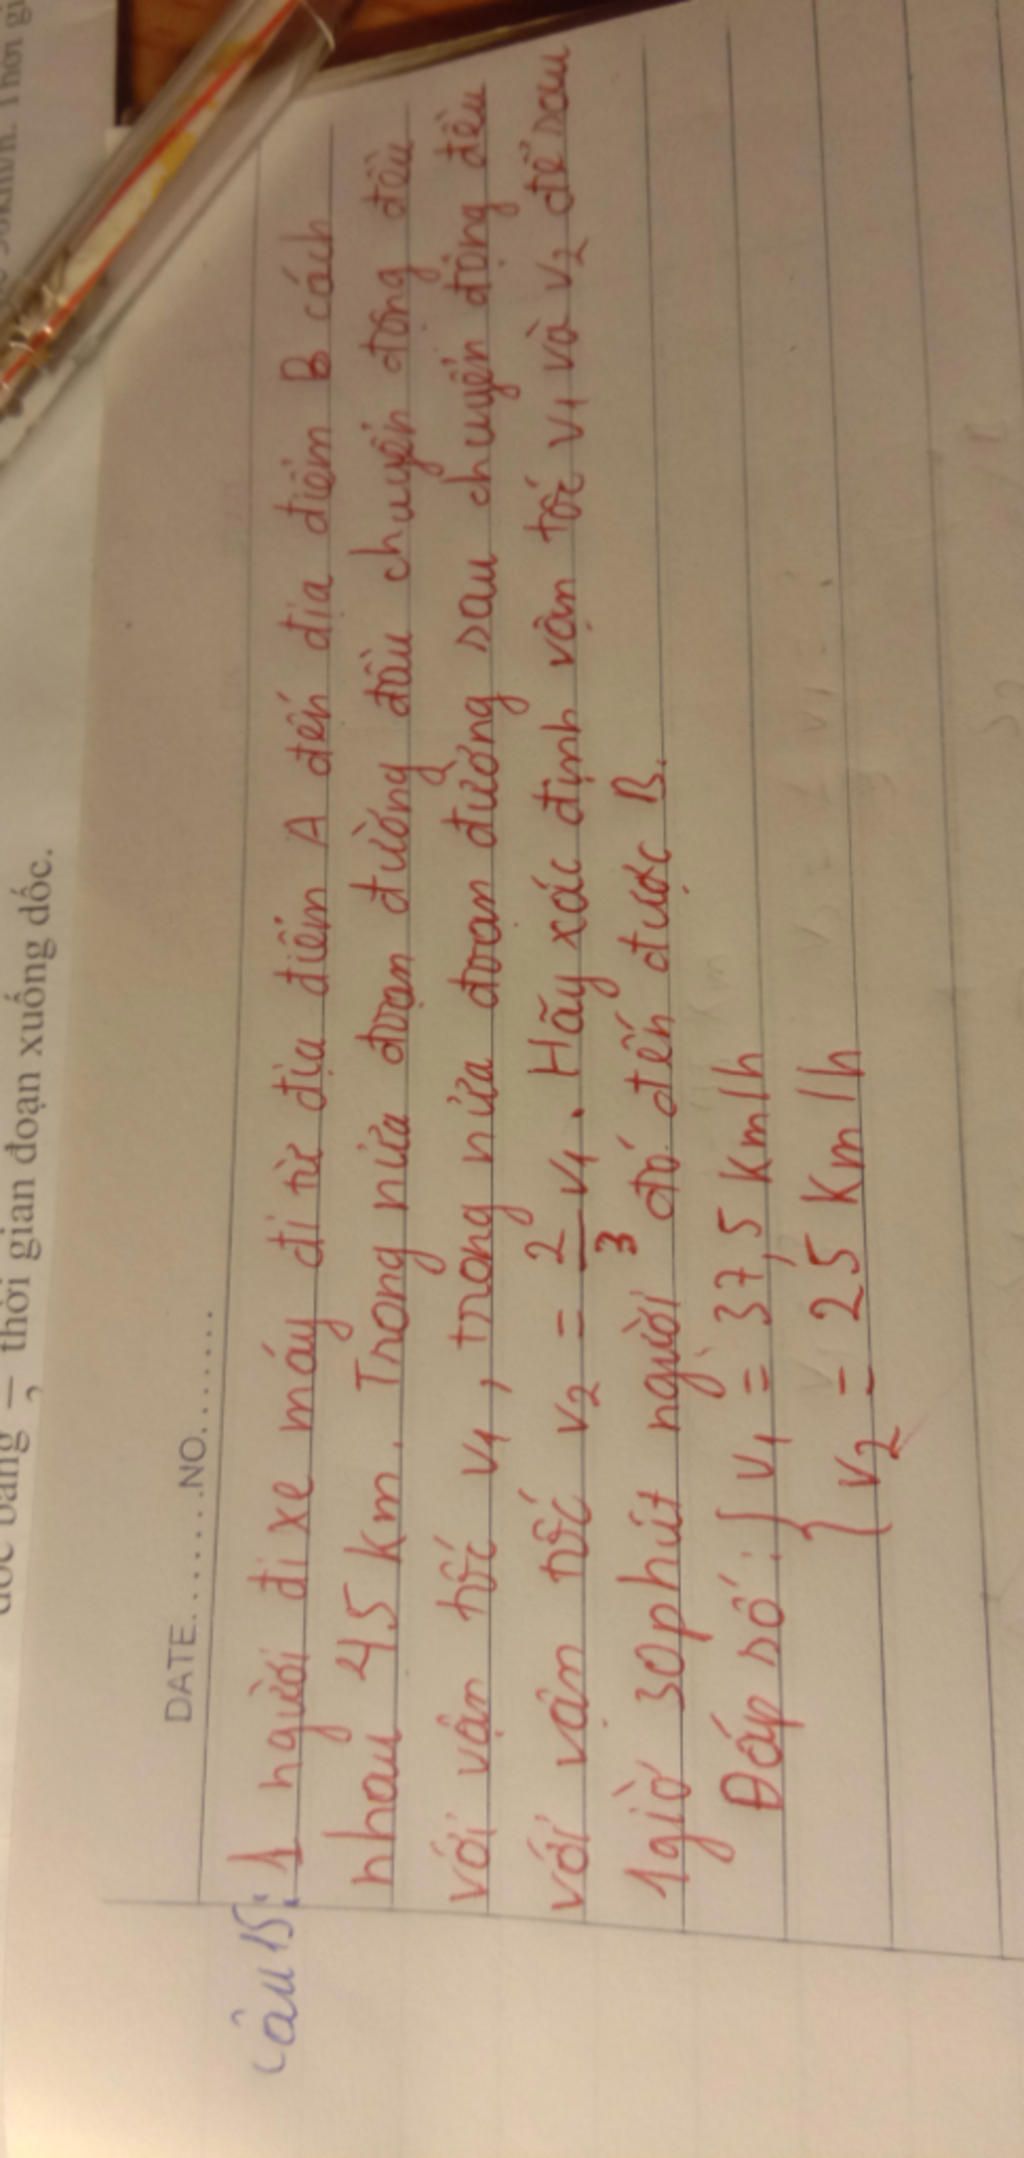 thời gian đoạn xuống dốc.
DATE.......NO.......
Câu 15: 1 người đi xe máy đi từ địa điểm A đến địa điểm B cách
nhau 45 km. Trong nửa đoạn đường đầu chuyển động đều
với vận tốc v1, trong nửa đoạn đường sau chuyển động đều
với vận tốc v2 = 2/3 v1. Hãy xác định vận tốc v1 và v2 để sau
1 giờ 30 phút người đó đến được B.
Đáp số: { v1 = 37,5 km/h
{ v2 = 25 km/h